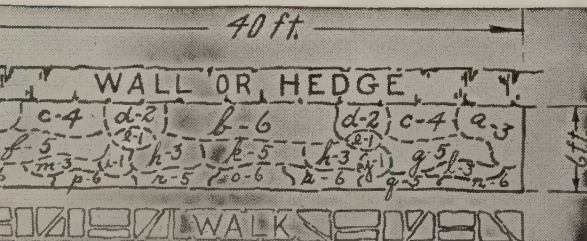 40 ft.
WALL OR HEDGE
c-4 d-2 b-6 d-2 c-4 a-3
e-1 e-1
f-5 h-3 k-5 h-3 g-5
m-3 i-1 j-1 l-3
p-6 n-5 o-6 k-6 q-5 n-6
6 ft.
WALK